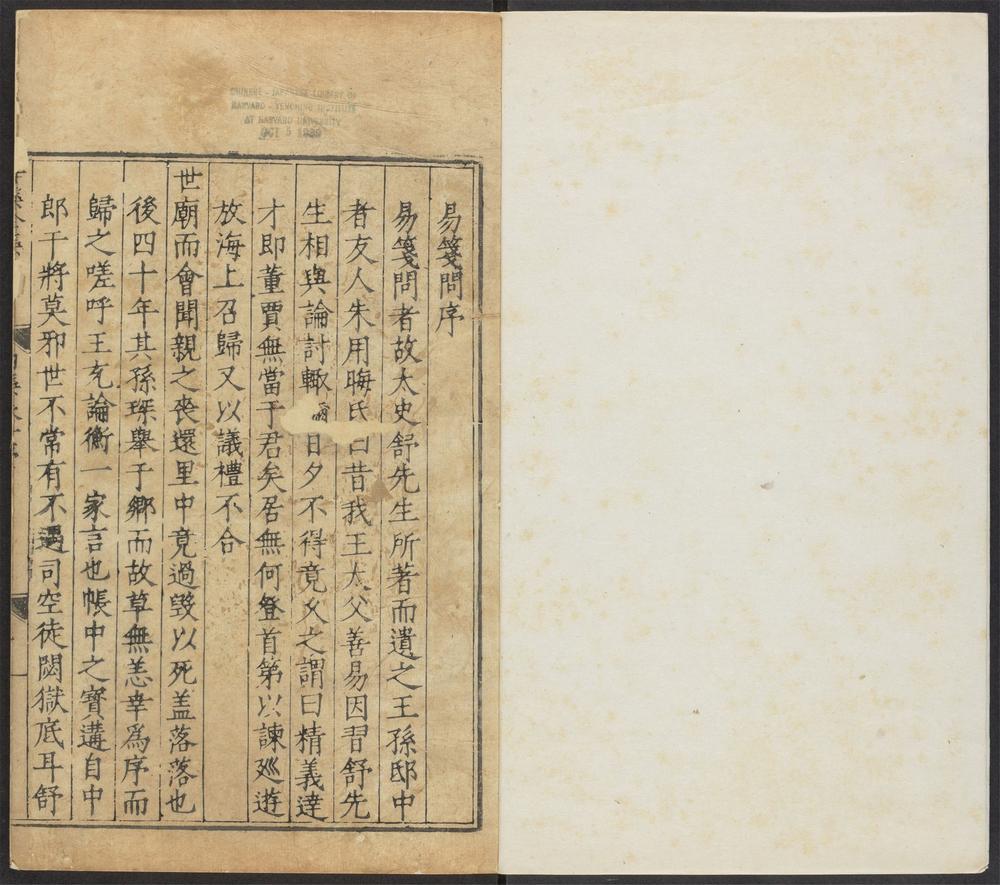 CHINESE - JAPANESE LIBRARY OF
HARVARD - YENCHING INSTITUTE
AT HARVARD UNIVERSITY
OCT 5 1939
易箋問序
易箋問者故太史舒先生所著而遺之王孫邸中
者友人朱用晦氏曰昔我王大父善易因習舒先
生相與論討輙日夕不得竟久之謂曰精義達
才即董賈無當于君矣居無何登首第以諫廵遊
放海上召歸又以議禮不合
世廟而會聞親之喪還里中竟過毀以死盖落落也
後四十年其孫琛舉于鄉而故草無恙幸爲序而
歸之嗟呼王充論衡一家言也帳中之寶遘自中
郎干將莫邪世不常有不遇司空徒閟獄底耳舒